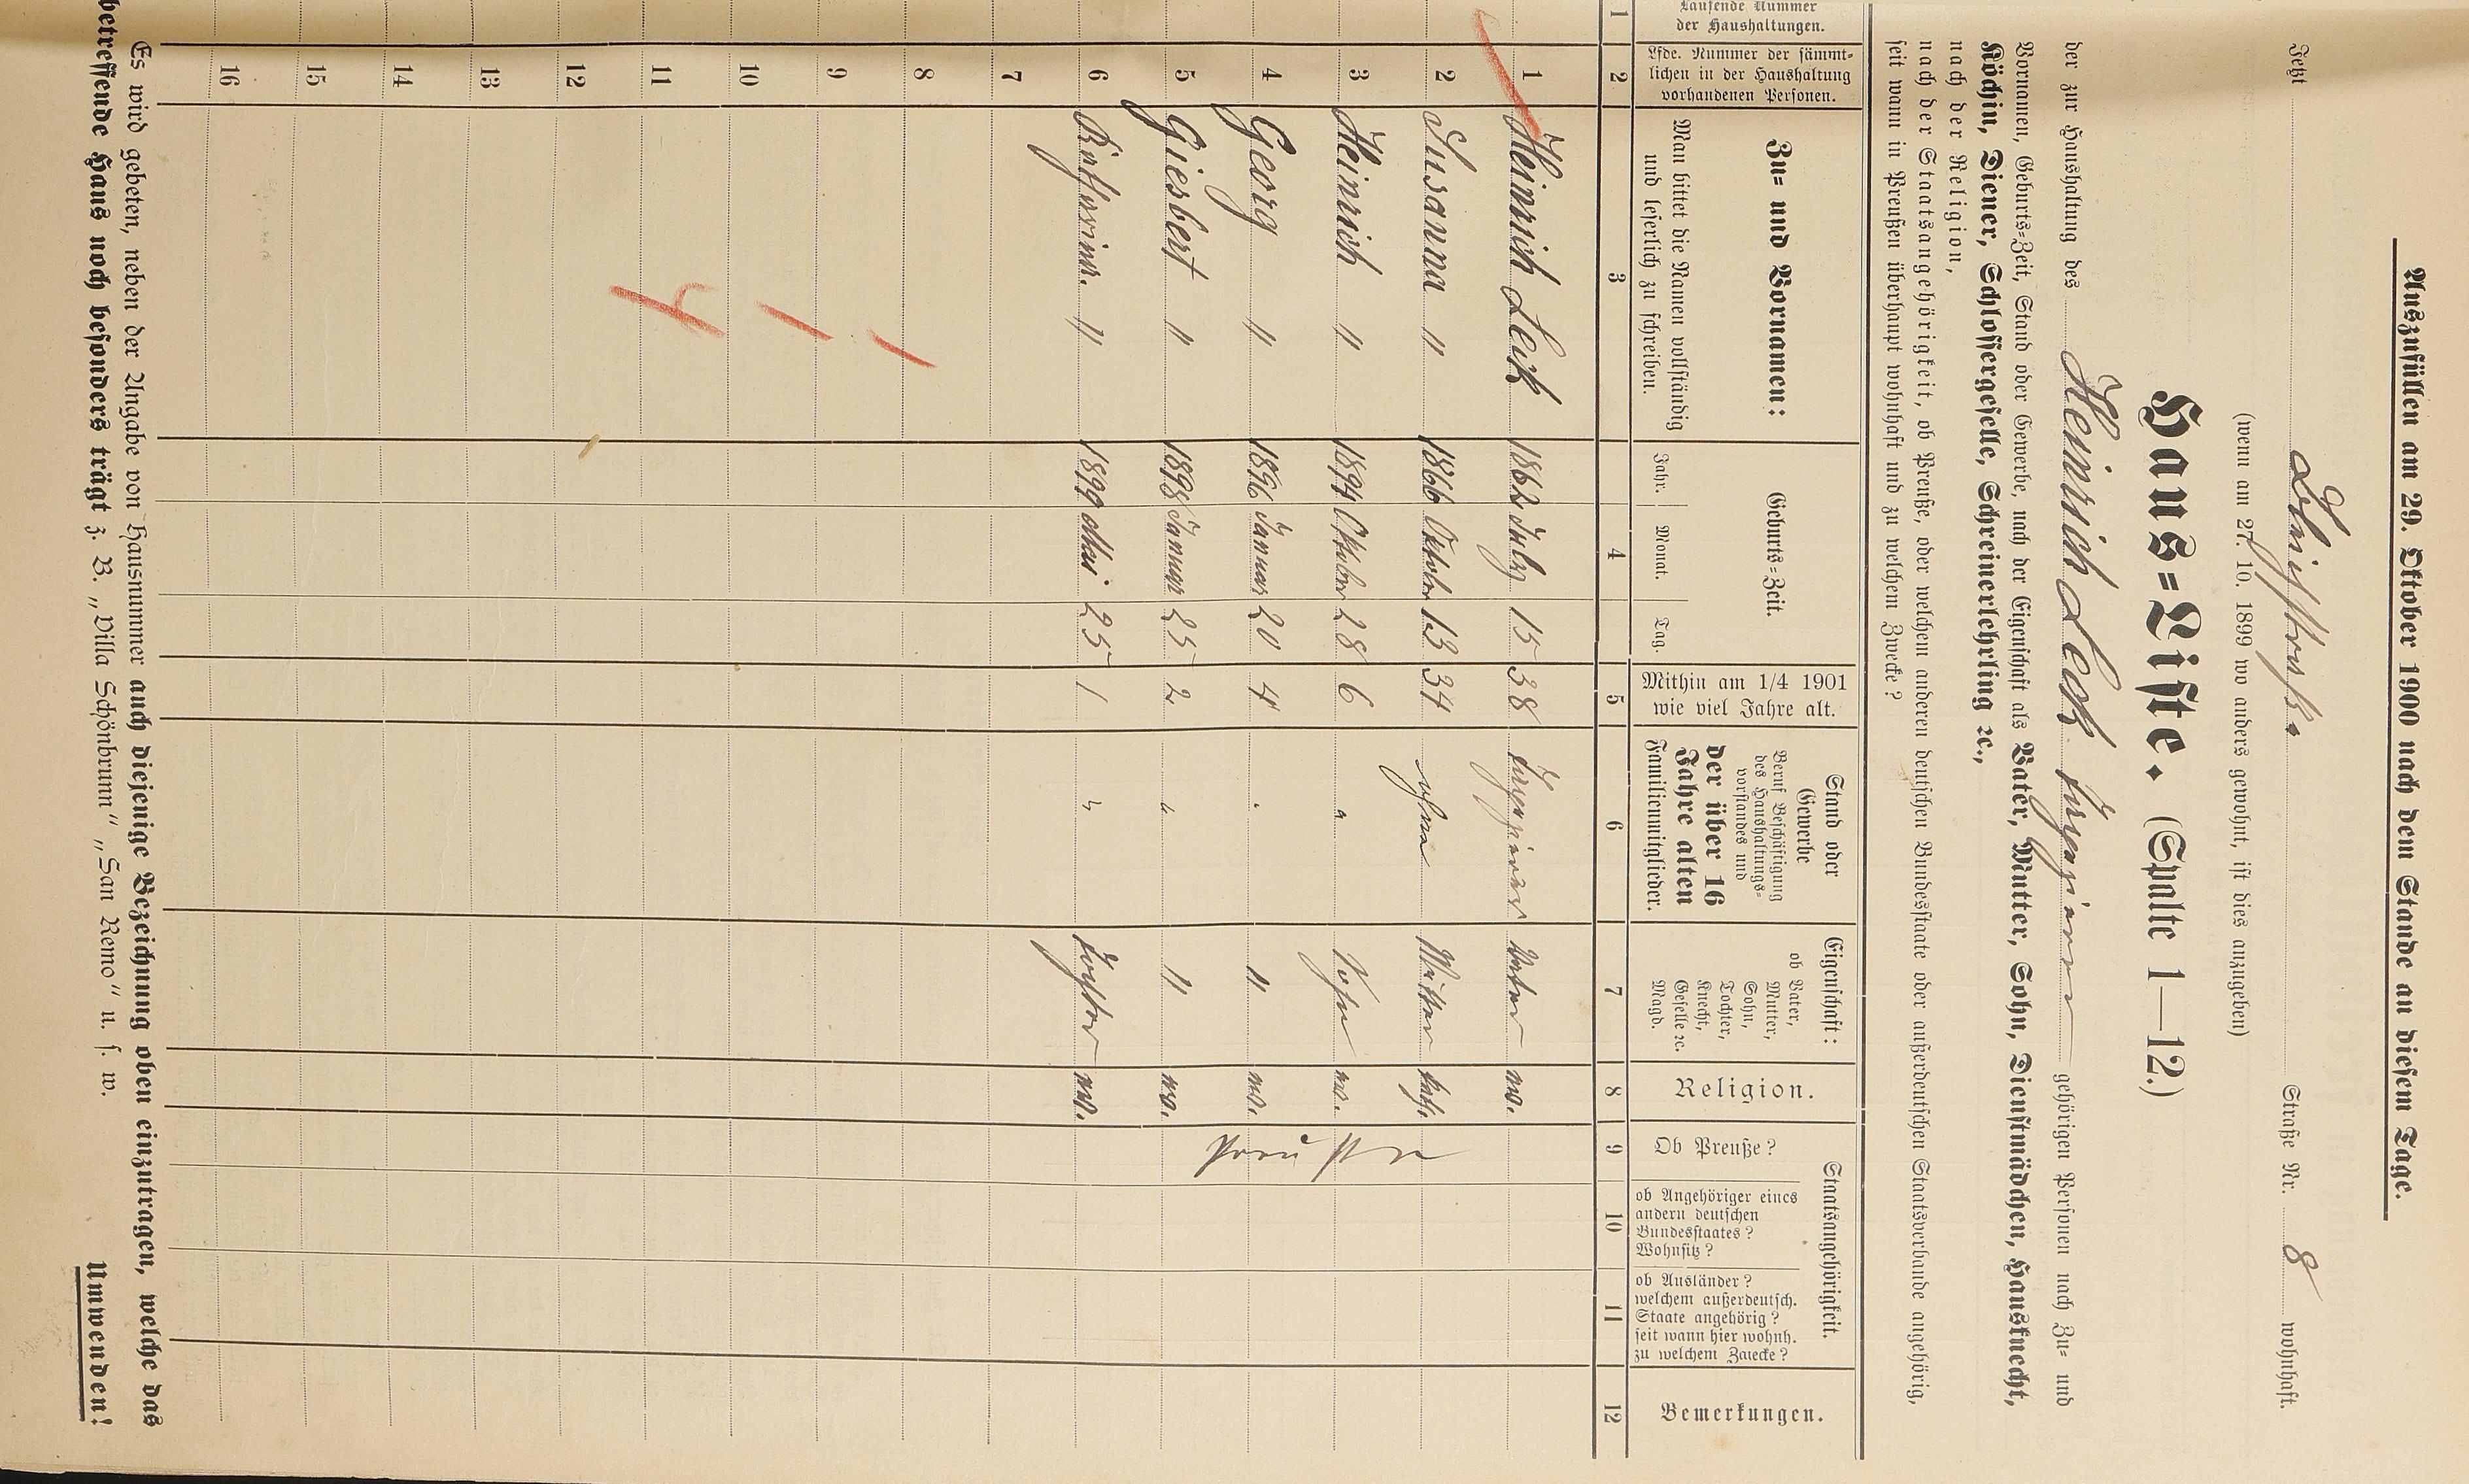 Auszufüllen am 29. Oktober 1900 nach dem Stande an diesem Tage.
Jetzt Straße Nr. 8 wohnhaft.
(wenn am 27. 10. 1899 wo anders gewohnt, ist dies anzugeben)
Haus-Liste. (Spalte 1—12.)
der zur Haushaltung des Heinrich Leck gehörigen Personen nach Zu- und
Vornamen, Geburts-Zeit, Stand oder Gewerbe, nach der Eigenschaft als Vater, Mutter, Sohn, Dienstmädchen, Hausknecht,
Köchin, Diener, Schlossergeselle, Schreinerlehrling ꝛc.,
nach der Religion,
nach der Staatsangehörigkeit, ob Preuße, oder welchem anderen deutschen Bundesstaate oder außerdeutschen Staatsverbande angehörig,
seit wann in Preußen überhaupt wohnhaft und zu welchem Zwecke?
Laufende Nummer
der Haushaltungen.
Lfde. Nummer der sämmt-
lichen in der Haushaltung
vorhandenen Personen.
Zu- und Vornamen:
Man bittet die Namen vollständig
und leserlich zu schreiben.
Geburts-Zeit.
Jahr. Monat. Tag.
Mithin am 1/4 1901
wie viel Jahre alt.
Stand oder
Gewerbe
Beruf Beschäftigung
des Haushaltungs-
vorstandes und
der über 16
Jahre alten
Familienmitglieder.
Eigenschaft:
ob Vater,
Mutter,
Sohn,
Tochter,
Knecht,
Geselle ꝛc.
Magd.
Religion.
Staatsangehörigkeit.
Ob Preuße?
ob Angehöriger eines
andern deutschen
Bundesstaates?
Wohnsitz?
ob Ausländer?
welchem außerdeutsch.
Staate angehörig?
seit wann hier wohnh.
zu welchem Zwecke?
Bemerkungen.
1 2 3 4 5 6 7 8 9 10 11 12
1 Heinrich Leck 1862 July 15 38 Vater ev.
2 Susanna " 1866 Oktober 13 34 ohne Mutter kath.
3 Heinrich " 1894 Oktober 28 6 " Sohn ev.
4 Georg " 1896 Januar 20 4 " " ev.
5 Giesbert " 1898 Januar 25 2 " " ev.
6 Katharina " 1899 Mai 25 1 " Tochter ev.
Preuße
7
8
9
10
11
12
13
14
15
16
Es wird gebeten, neben der Angabe von Hausnummer auch diejenige Bezeichnung oben einzutragen, welche das
betreffende Haus noch besonders trägt z. B. „Villa Schönbrunn“ „San Remo“ u. s. w.
Umwenden!